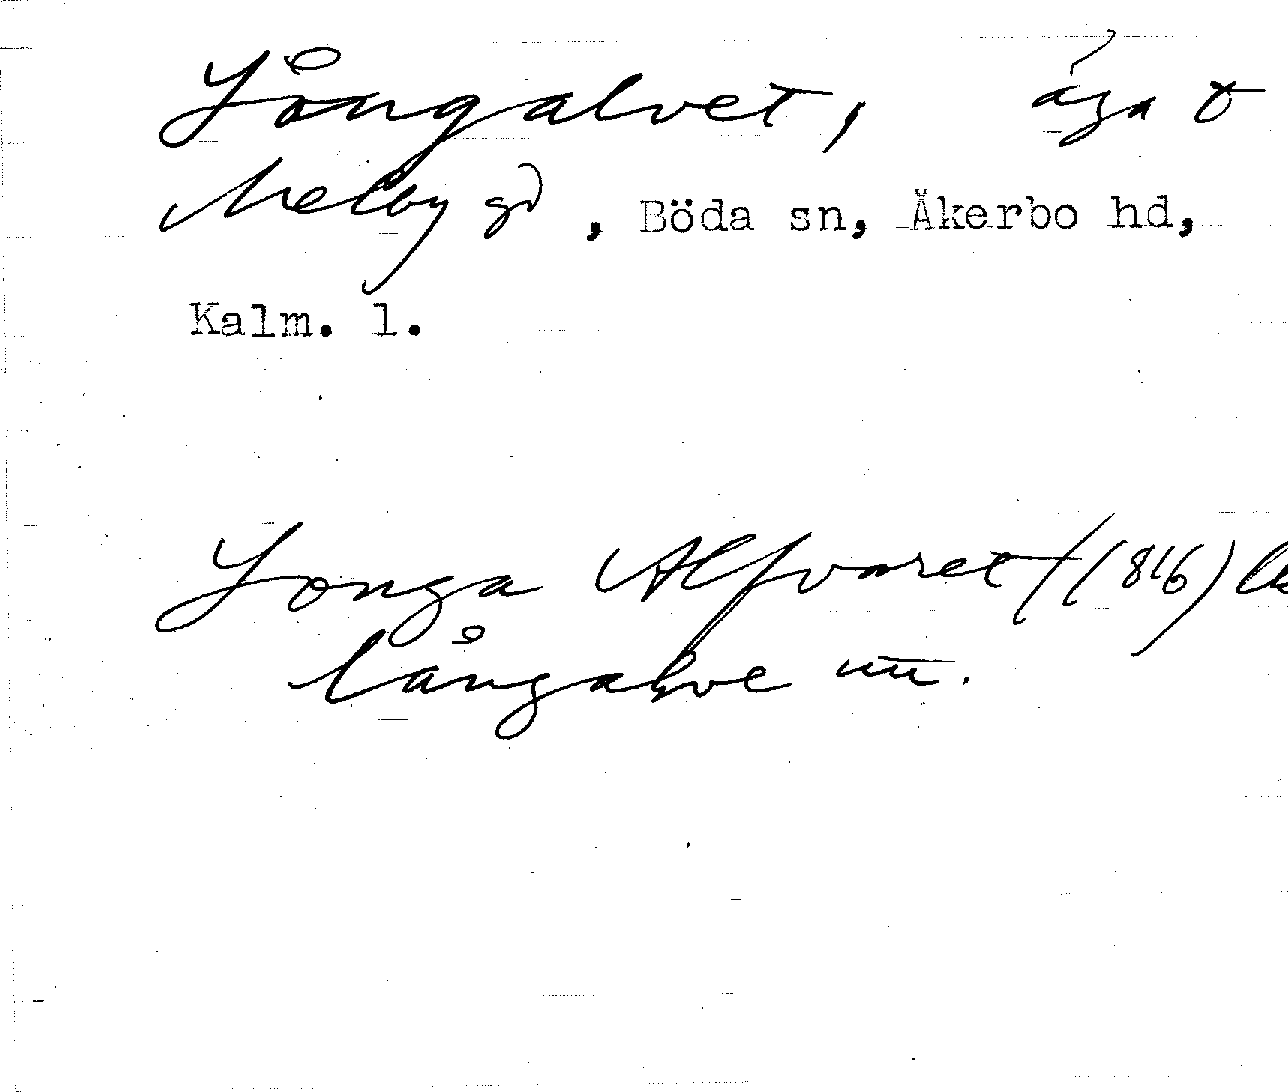 Långalvet, äga t
Melby gd, Böda sn, Åkerbo hd,
Kalm. l.
Longa Alfvaret (1816)
långalve nu.